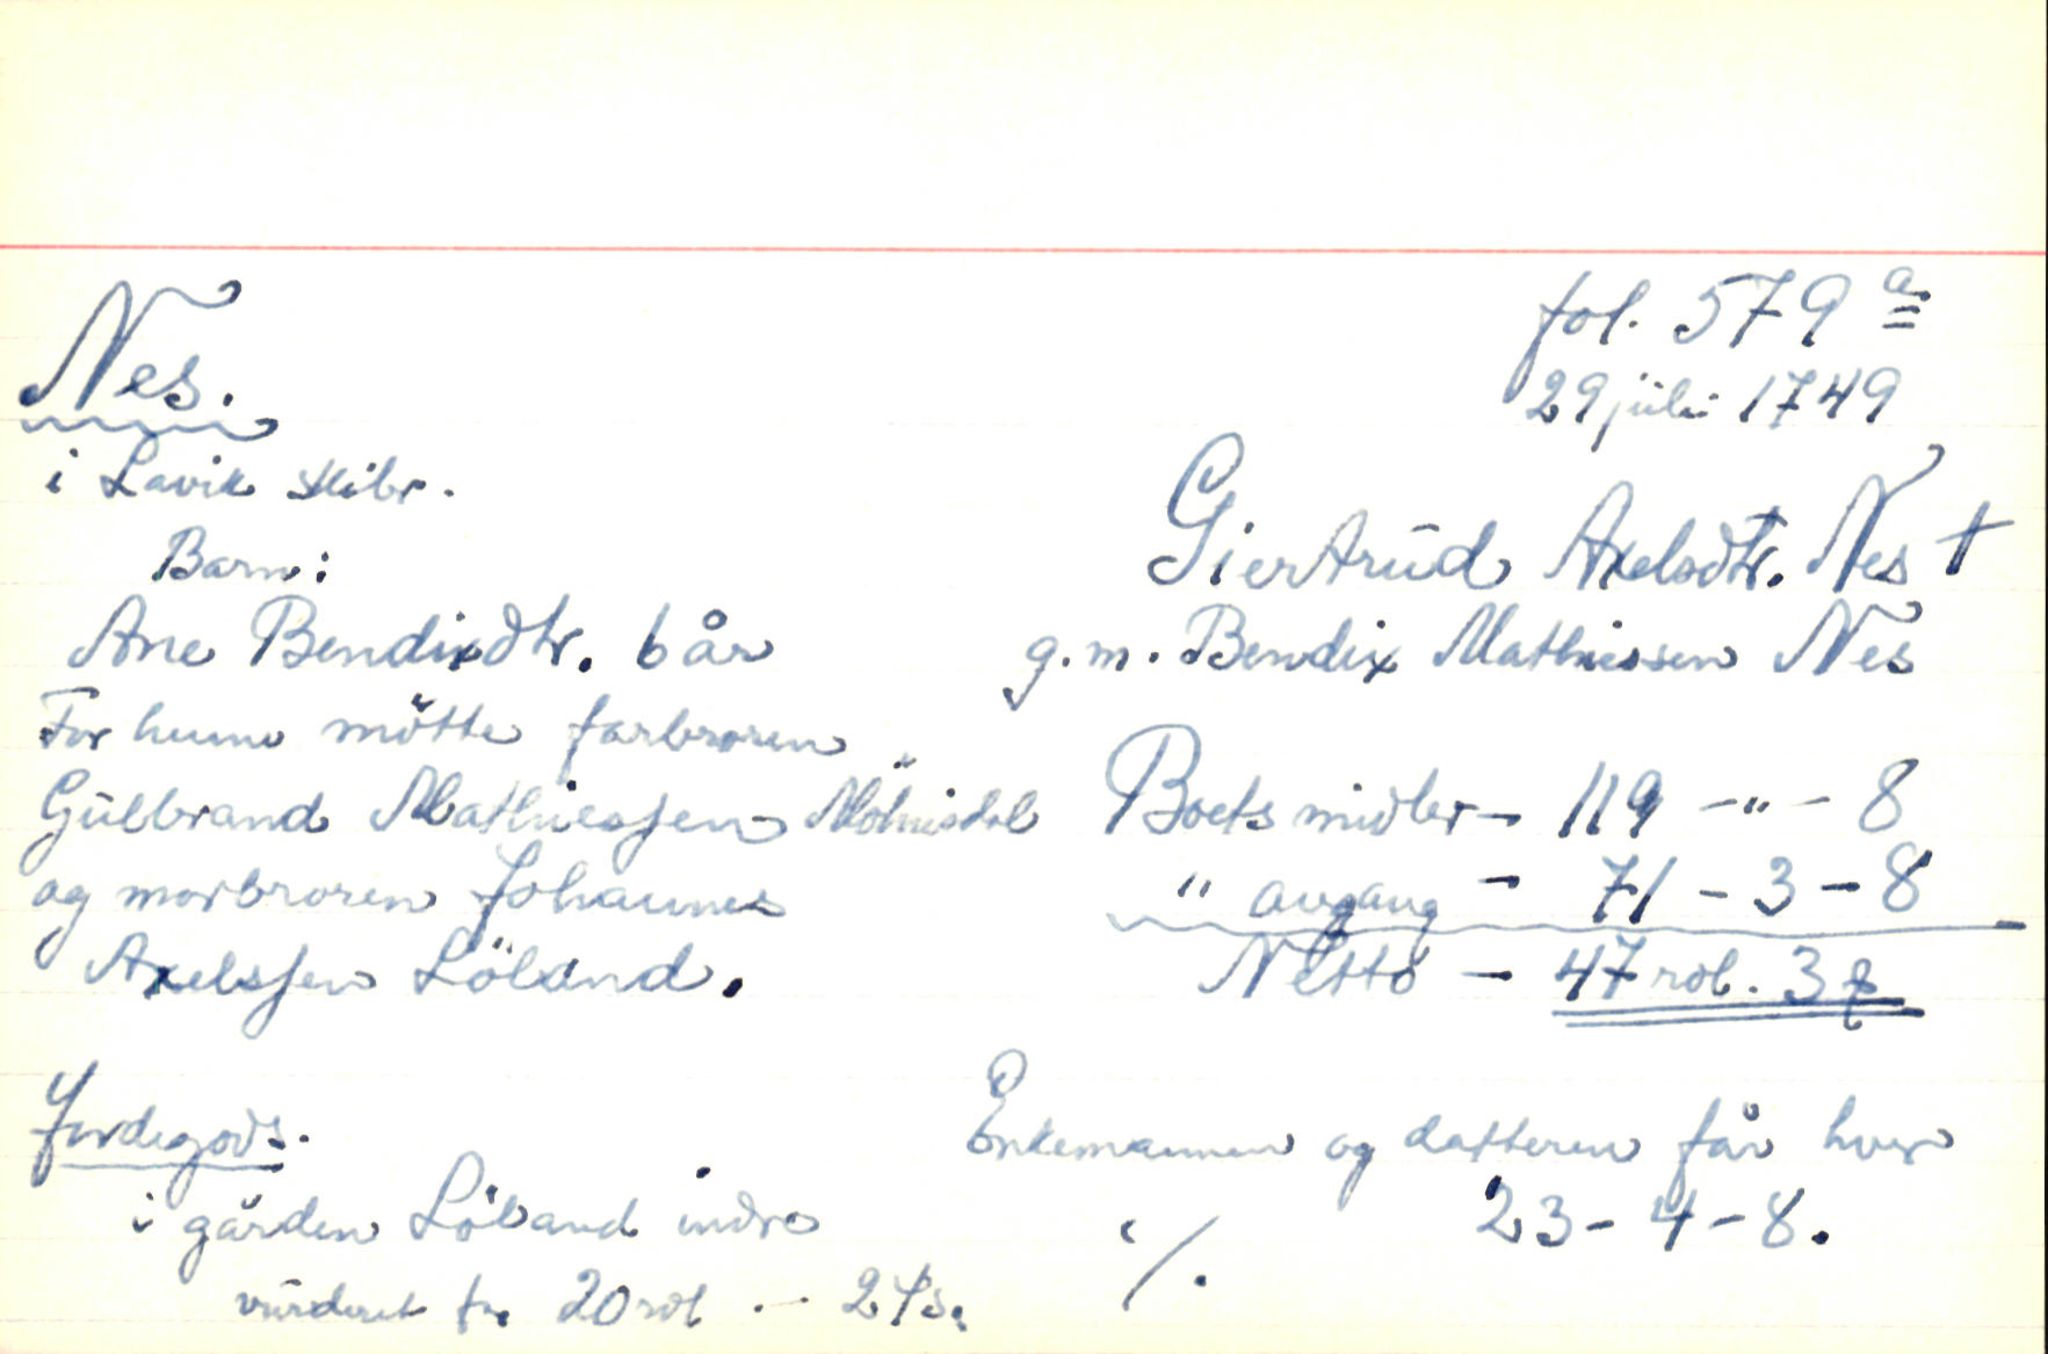 Nes.
i Lavik skibr.
fol. 579 a
29 juli 1749
Giertrud Axelsdtr. Nes †
g.m. Bendix Mathiessen Nes
Barn:
Ane Bendixdtr. 6 år
For henne mötte farbroren
Gulbrand Mathiessen
og morbroren Johannes
Axelssen Löland.
Boets midler - 119 - " - 8
" avgang - 71 - 3 - 8
Netto - 47 rdl. 3
Enkemannen og datteren får hver
23 - 4 - 8.
Jordegods.
i gården Löland indre
vurderet for 20 rdl
./.